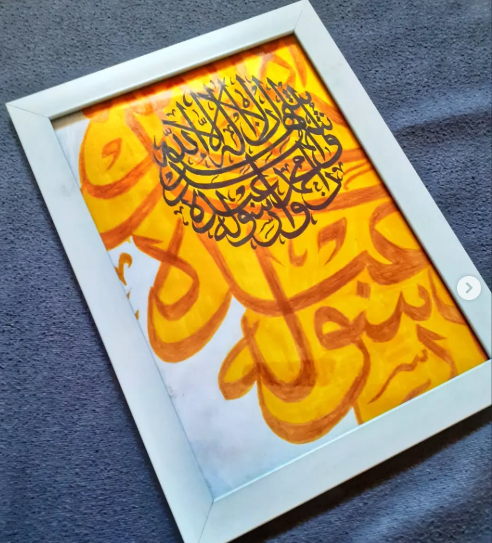 اشهد ان لا اله الا الله
واشهد ان محمدا
عبده ورسوله
عبده
رسوله